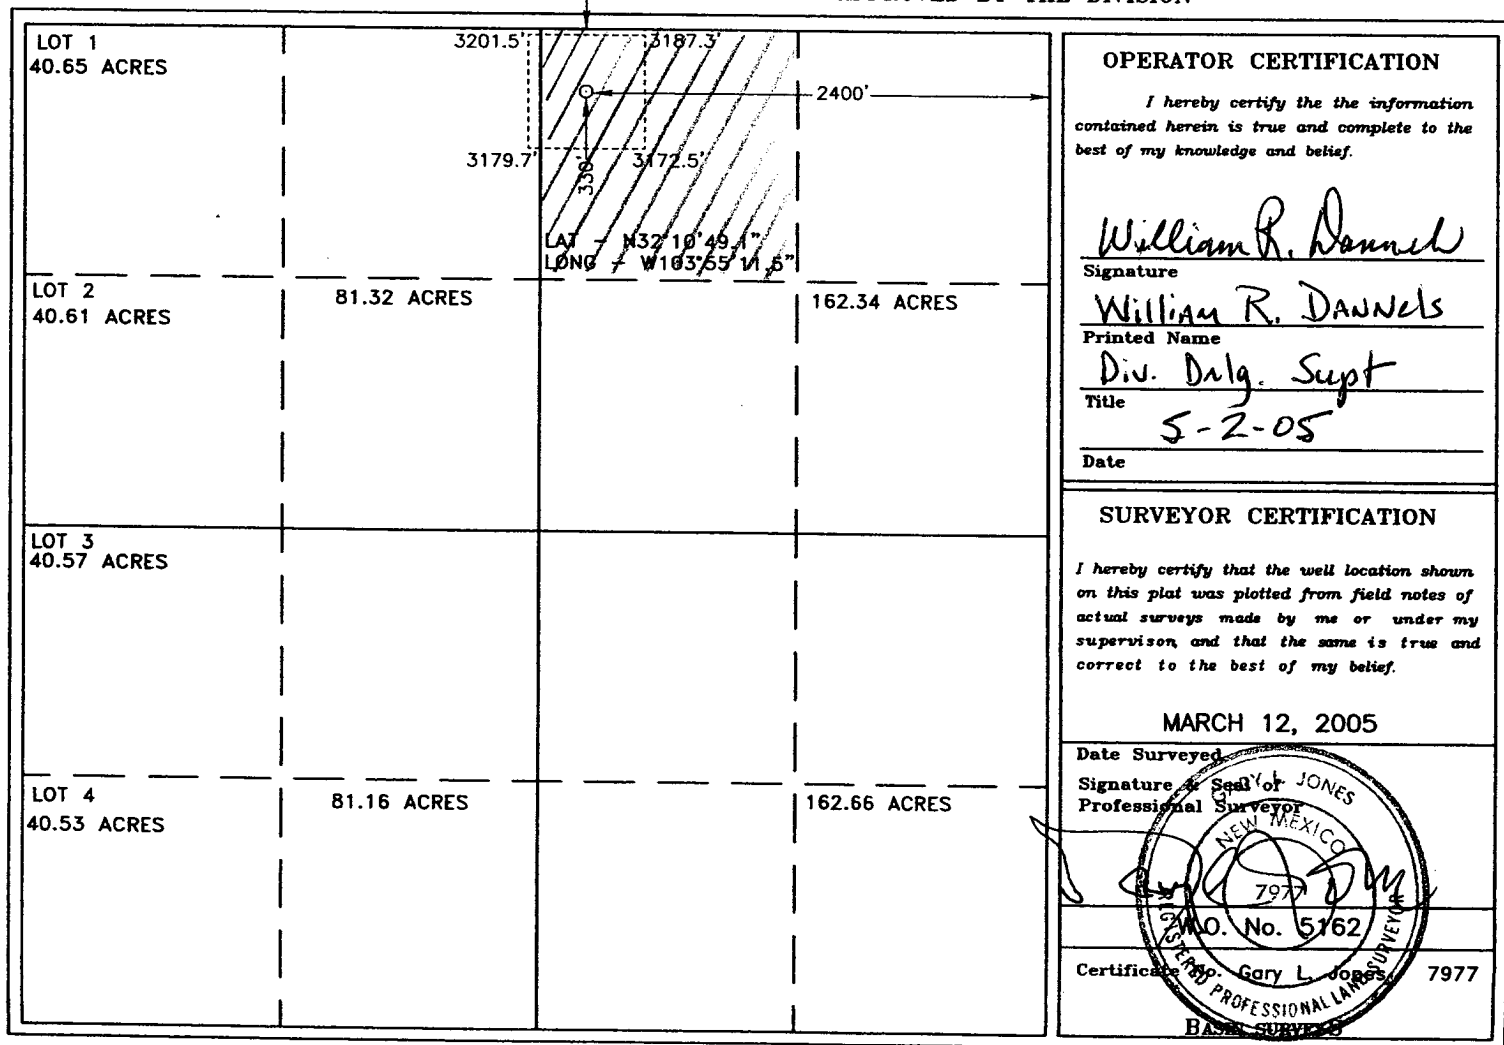 LOT 1
40.65 ACRES
3201.5'
3187.3'
2400'
3179.7'
3172.5'
330'
LAT - N32°10'49.1"
LONG - W103°55'11.5"
LOT 2
40.61 ACRES
81.32 ACRES
162.34 ACRES
LOT 3
40.57 ACRES
LOT 4
40.53 ACRES
81.16 ACRES
162.66 ACRES
OPERATOR CERTIFICATION
I hereby certify the the information
contained herein is true and complete to the
best of my knowledge and belief.
William R. Dannels
Signature
William R. DANNELS
Printed Name
Div. Drlg. Supt
Title
5-2-05
Date
SURVEYOR CERTIFICATION
I hereby certify that the well location shown
on this plat was plotted from field notes of
actual surveys made by me or under my
supervison, and that the same is true and
correct to the best of my belief.
MARCH 12, 2005
Date Surveyed
Signature & Seal of
Professional Surveyor
GARY L. JONES
NEW MEXICO
7977
REGISTERED PROFESSIONAL LAND SURVEYOR
W.O. No. 5162
Certificate No. Gary L. Jones 7977
BASIN SURVEYS